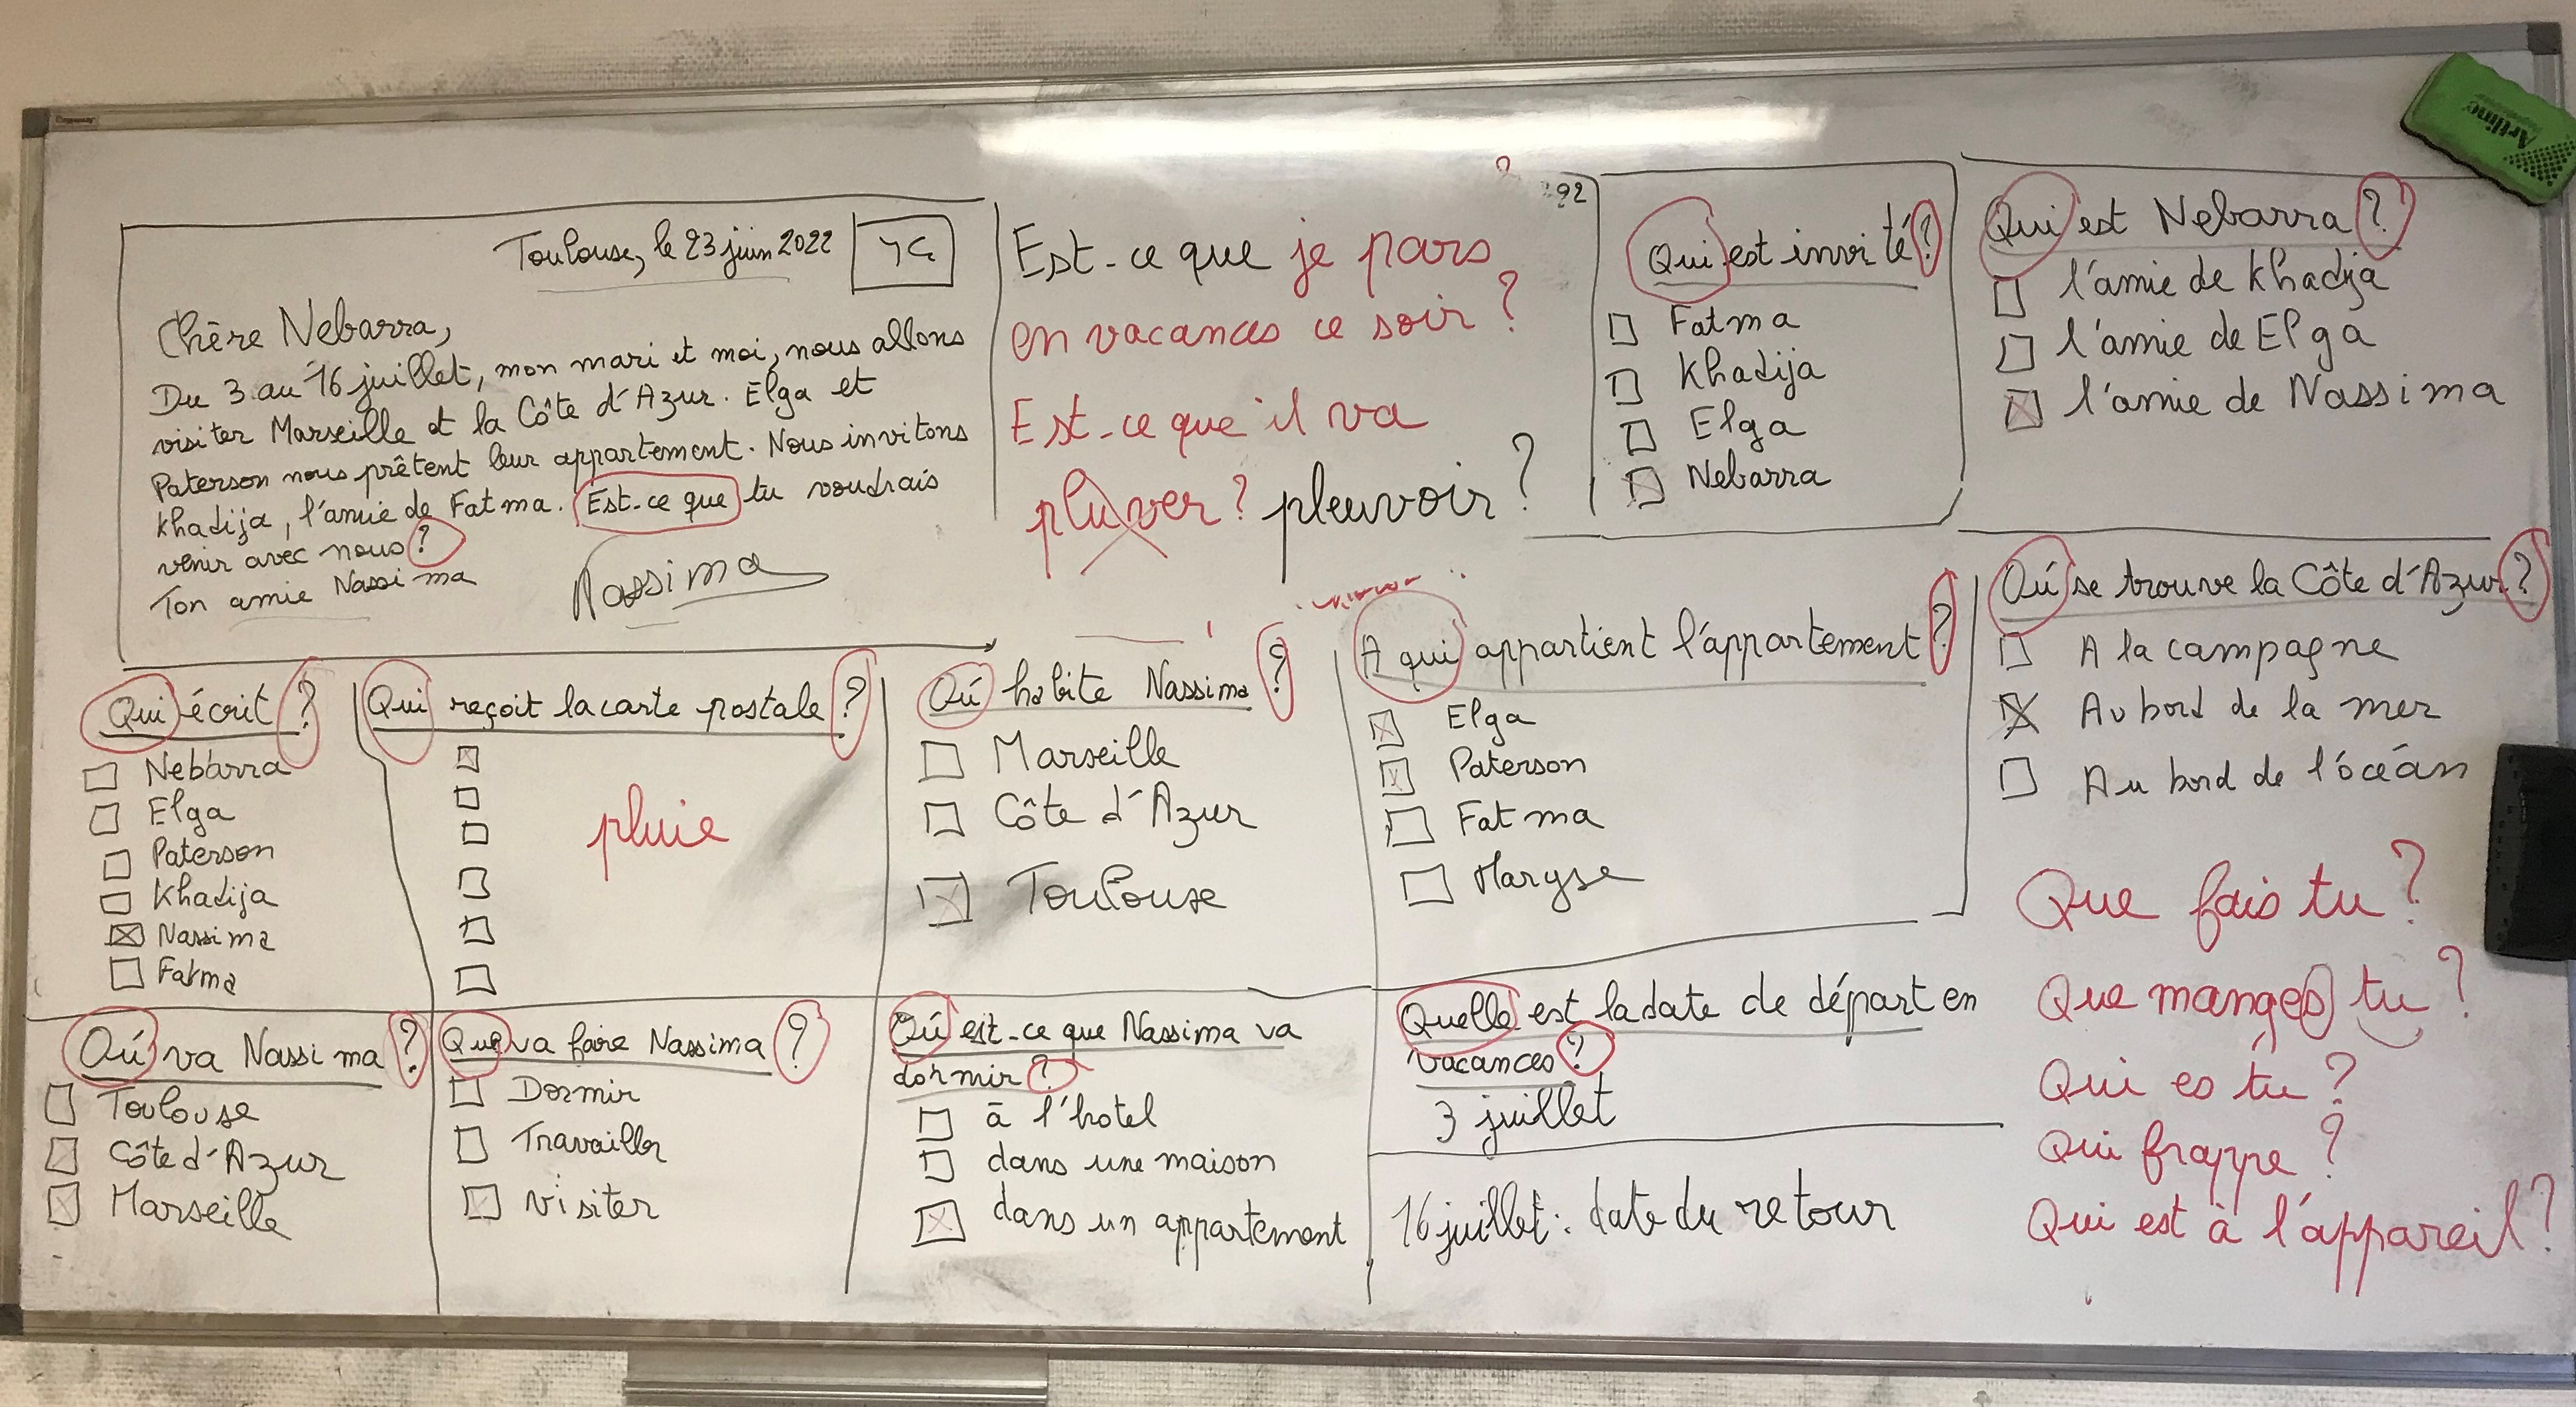 Toulouse, le 23 juin 2022
Chère Nebarra,
Du 3 au 16 juillet, mon mari et moi, nous allons
visiter Marseille et la Côte d'Azur. Elga et
Paterson nous prêtent leur appartement. Nous invitons
Khadija, l'amie de Fatma. Est-ce que tu voudrais
venir avec nous ?
Ton amie Nassima
Nassima
Est-ce que je pars
en vacances ce soir ?
Est-ce que il va
pluver ? pleuvoir ?
92
Qui est invité ?
Fatma
Khadija
Elga
Nebarra
Qui est Nebarra ?
l'amie de Khadija
l'amie de Elga
l'amie de Nassima
Artline
Qui écrit ?
Nebarra
Elga
Paterson
Khadija
Nassima
Fatma
Qui reçoit la carte postale ?
pluie
Où habite Nassima ?
Marseille
Côte d'Azur
Toulouse
A qui appartient l'appartement ?
Elga
Paterson
Fatma
Maryse
Où se trouve la Côte d'Azur ?
A la campagne
Au bord de la mer
Au bord de l'océan
Où va Nassima ?
Toulouse
Côte d'Azur
Marseille
Que va faire Nassima ?
Dormir
Travailler
visiter
Où est-ce que Nassima va
dormir ?
à l'hotel
dans une maison
dans un appartement
Quelle est la date de départ en
vacances ?
3 juillet
16 juillet : date du retour
Que fais tu ?
Que manges tu ?
Qui es tu ?
Qui frappe ?
Qui est à l'appareil ?